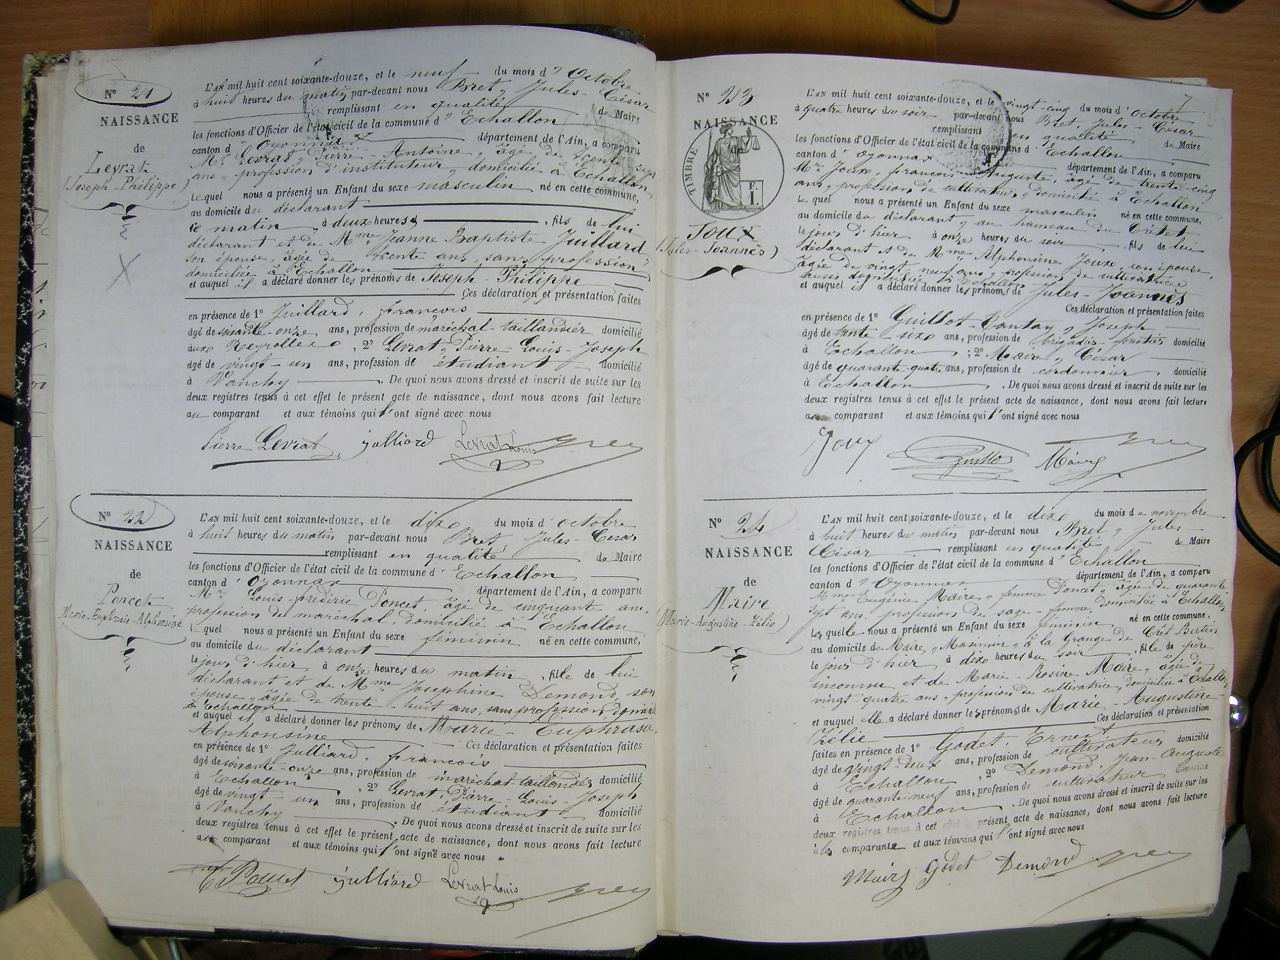 N° 21
NAISSANCE
de
Levrat
(Joseph Philippe)
L'AN mil huit cent soixante-douze, et le neuf du mois d'Octobre
à huit heures du matin par-devant nous Bret, Jules-César
remplissant en qualité de Maire
les fonctions d'Officier de l'état civil de la commune d'Echallon
canton d'Oyonnax département de l'Ain, a comparu
Mr Levrat, Pierre Antoine âgé de trente sept
ans, profession d'instituteur, domicilié à Echallon
Lequel nous a présenté un Enfant du sexe masculin né en cette commune,
au domicile du déclarant
ce matin à deux heures, fils de lui
déclarant et de Mme Jeanne Baptiste Juillard
son épouse, âgée de trente ans, sans profession
domiciliée à Echallon
et auquel il a déclaré donner les prénoms de Joseph Philippe
Ces déclaration et présentation faites
en présence de 1° Juillard, françois
âgé de soixante-onze ans, profession de maréchal-taillandier domicilié
aux Neyrolles, 2° Levrat-Pierre-Louis-Joseph
âgé de vingt-un ans, profession de étudiant domicilié
à Vanchy. De quoi nous avons dressé et inscrit de suite sur les
deux registres tenus à cet effet le présent acte de naissance, dont nous avons fait lecture
au comparant et aux témoins qui l'ont signé avec nous
Pierre Levrat Julliard Levrat Louis Bret
N° 22
NAISSANCE
de
Poncet
Marie-Euphrasie-Alphonsine
L'AN mil huit cent soixante-douze, et le dix du mois d'octobre
à huit heures du matin par-devant nous Bret, Jules-César
remplissant en qualité de Maire
les fonctions d'Officier de l'état civil de la commune d'Echallon
canton d'Oyonnax département de l'Ain, a comparu
Mr Louis-frédéric Poncet, âgé de cinquante ans,
profession de maréchal, domicilié à Echallon
Lequel nous a présenté un Enfant du sexe féminin né en cette commune,
au domicile du déclarant
le jour d'hier à onze heures du matin, fille de lui
déclarant et de Mme Joséphine Demond, son
épouse, âgée de trente-huit ans, sans profession, domiciliée
à Echallon
et auquel il a déclaré donner les prénoms de Marie-Euphrasie
Alphonsine Ces déclaration et présentation faites
en présence de 1° Julliard, françois
âgé de soixante-onze ans, profession de maréchal-taillandier domicilié
à Echallon, 2° Levrat, Pierre-Louis-Joseph
âgé de vingt-un ans, profession de étudiant domicilié
à Vanchy. De quoi nous avons dressé et inscrit de suite sur les
deux registres tenus à cet effet le présent acte de naissance, dont nous avons fait lecture
au comparant et aux témoins qui l'ont signé avec nous
Poncet Julliard Levrat Louis Bret
N° 23
NAISSANCE
de
TIMBRE
F. I.
Joux
(Jules-Joannès)
L'AN mil huit cent soixante-douze, et le vingt-cinq du mois d'Octobre
à quatre heures du soir par-devant nous Bret, Jules-César
remplissant en qualité de Maire
les fonctions d'Officier de l'état civil de la commune d'Echallon
canton d'Oyonnax département de l'Ain, a comparu
Mr Joux, françois Auguste, âgé de trente-cinq
ans, profession de cultivateur, domicilié à Echallon
Lequel nous a présenté un Enfant du sexe masculin né en cette commune,
au domicile du déclarant, au hameau du Crétet
le jour d'hier à onze heures du soir, fils de lui
déclarant et de Mme Alphonsine Joux, son épouse,
âgée de vingt-neuf ans, profession de cultivatrice
aussi domiciliée à Echallon
et auquel il a déclaré donner les prénoms de Jules-Joannès
Ces déclaration et présentation faites
en présence de 1° Guillot-Cantay, Joseph
âgé de trente-six ans, profession de brigadier-forestier domicilié
à Echallon, 2° Maire, César
âgé de quarante-quatre ans, profession de cordonnier domicilié
à Echallon. De quoi nous avons dressé et inscrit de suite sur les
deux registres tenus à cet effet le présent acte de naissance, dont nous avons fait lecture
au comparant et aux témoins qui l'ont signé avec nous
Joux Guillot Maire Bret
N° 24
NAISSANCE
de
Maire
(Marie-Augustine-Zélie)
L'AN mil huit cent soixante-douze, et le dix du mois de novembre
à huit heures du matin par-devant nous Bret, Jules
César remplissant en qualité de Maire
les fonctions d'Officier de l'état civil de la commune d'Echallon
canton d'Oyonnax département de l'Ain, a comparu
Mme Eugénie Maire, femme Poncet, âgée de quarante
sept ans, profession de sage-femme, domiciliée à Echallon
Laquelle nous a présenté un Enfant du sexe féminin né en cette commune,
au domicile de Maire, à la Grange du Crêt Bertin
le jour d'hier à dix heures du soir, fille de père
inconnu et de Marie-Rosine Maire, âgée de
vingt-quatre ans, profession de cultivatrice, domiciliée à Echallon
et auquel elle a déclaré donner les prénoms de Marie-Augustine
Zélie Ces déclaration et présentation
faites en présence de 1° Godet, Ernest
âgé de vingt-deux ans, profession de cultivateur domicilié
à Echallon, 2° Demond Jean-Auguste
âgé de quarante-neuf ans, profession de cultivateur domicilié
à Echallon. De quoi nous avons dressé et inscrit de suite sur les
deux registres tenus à cet effet le présent acte de naissance, dont nous avons fait lecture
à la comparante et aux témoins qui l'ont signé avec nous
Maire Godet Demond Bret